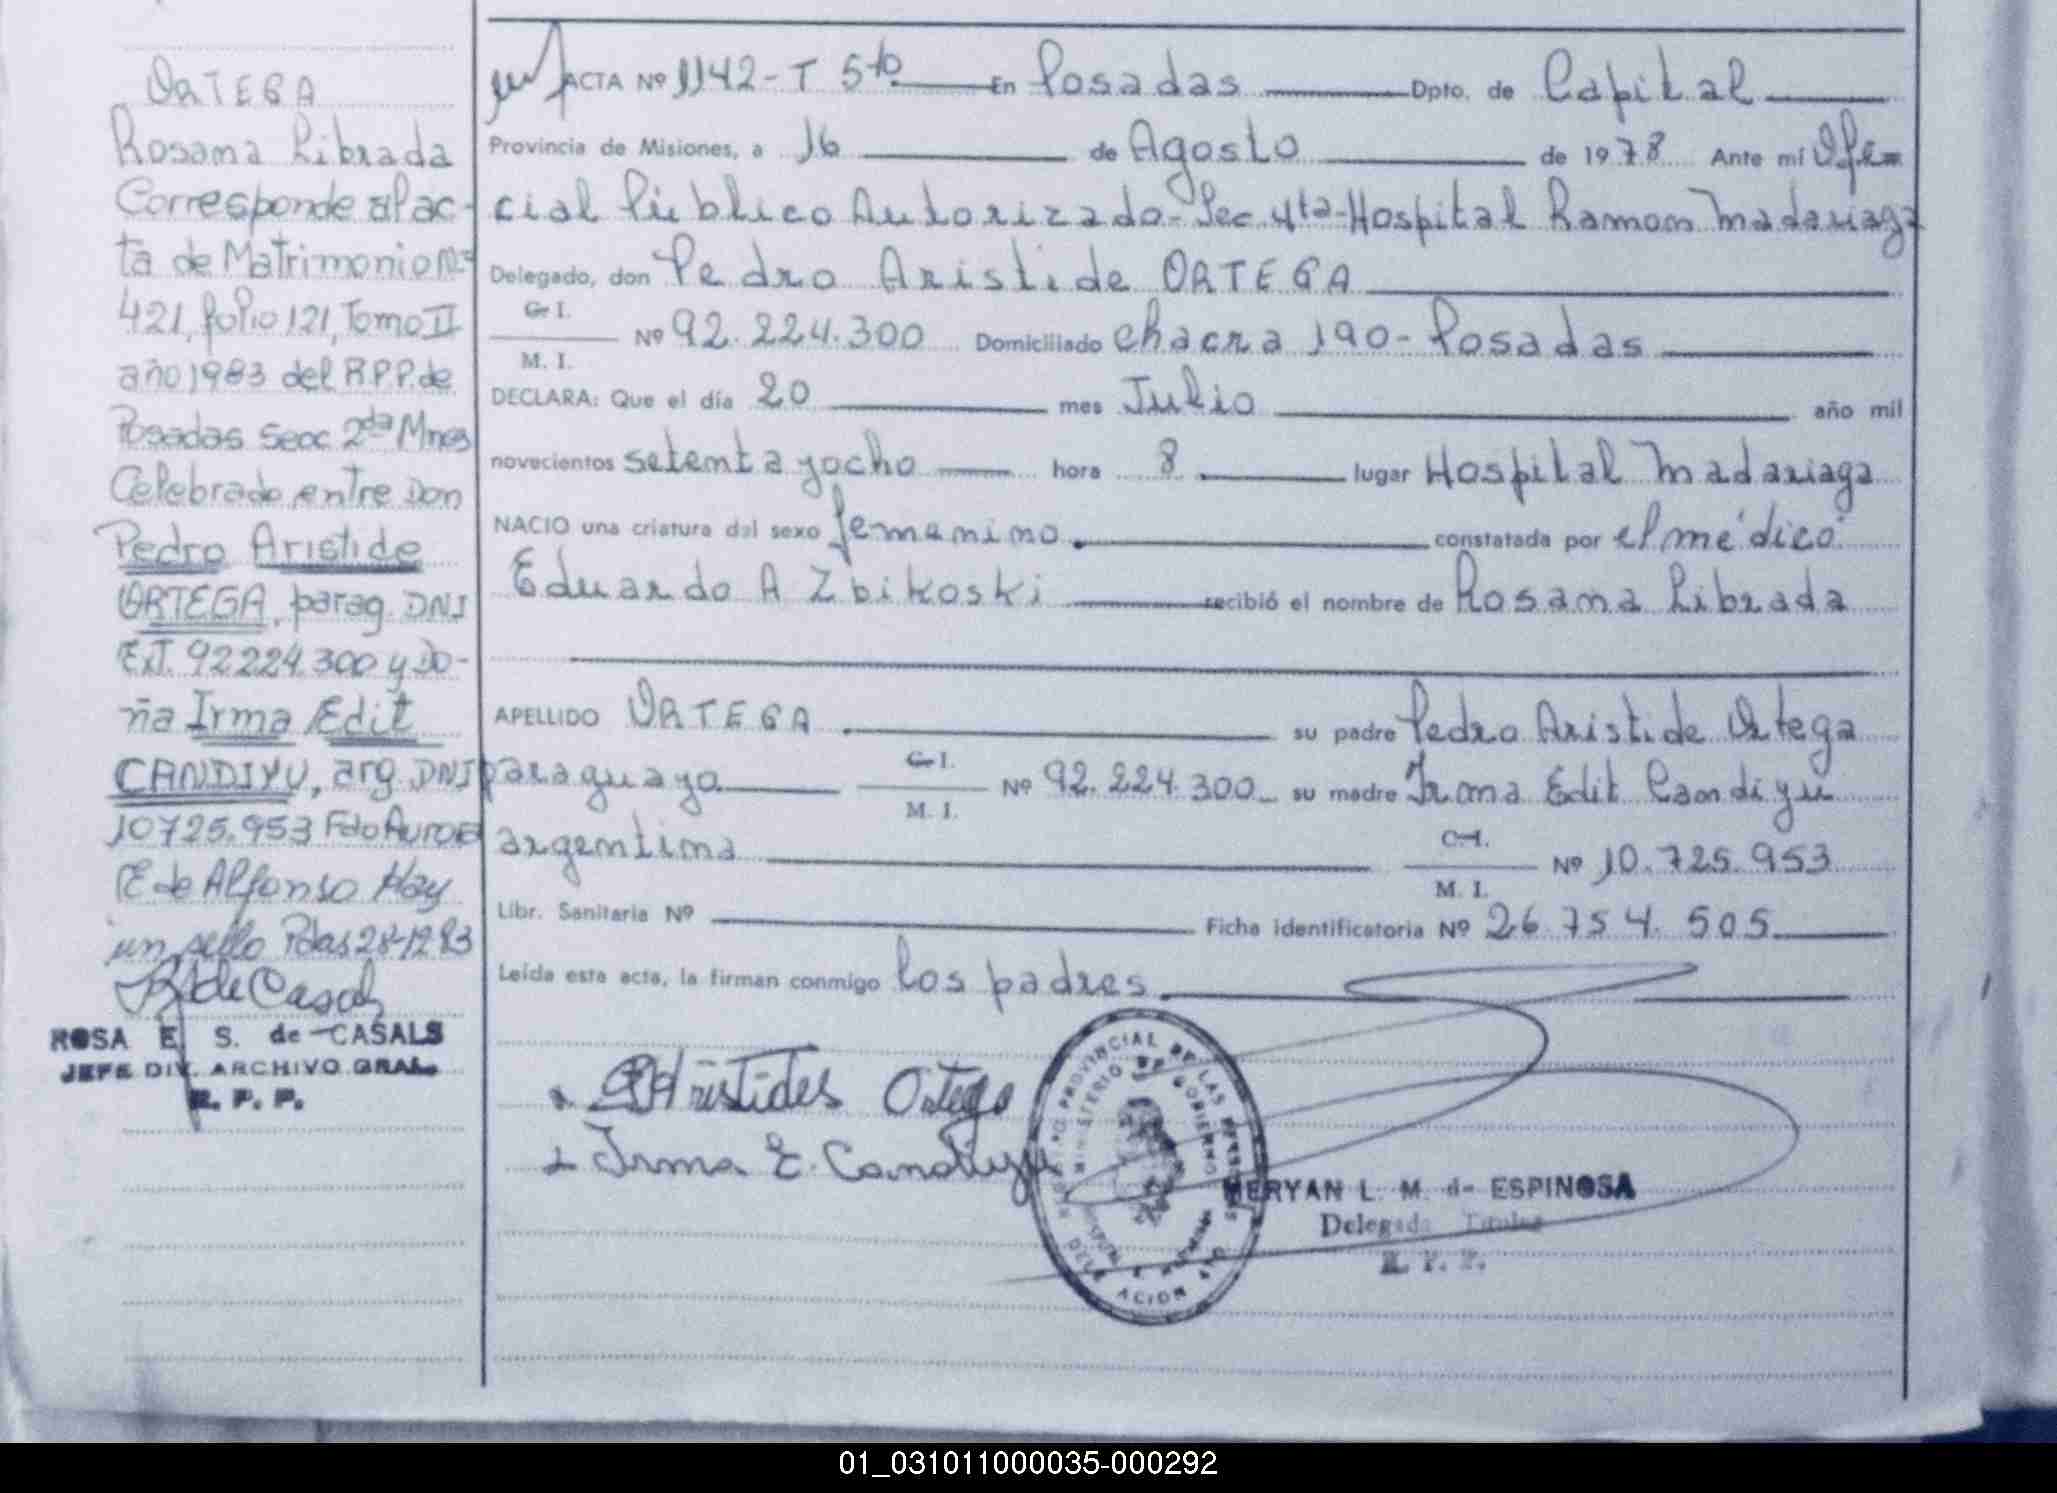 ORTEGA
Rosana Librada
Corresponde al ac-
ta de Matrimonio Nº
421, folio 121, Tomo II
año 1983 del R.P.P. de
Posadas Secc 2da Mnes
Celebrado entre Don
Pedro Aristide
ORTEGA, parag. DNI
Ext. 92224.300 y Do-
ña Irma Edit
CANDIYU, arg. DNI
10725.953 Fdo
E de Alfonso Hay
un sello Pdas 28-12-83
R de Casals
ROSA E. S. de CASALS
JEFE DIV. ARCHIVO GRAL.
R. P. P.
ACTA Nº 1142-T 5to En Posadas Dpto. de Capital
Provincia de Misiones, a 16 de Agosto de 1978 Ante mi Ofi-
cial Público Autorizado-Sec 4ta-Hospital Ramon Madariaga
Delegado, don Pedro Aristide ORTEGA
C. I.
M. I. Nº 92.224.300 Domiciliado chacra 190-Posadas
DECLARA: Que el día 20 mes Julio año mil
novecientos setenta y ocho hora 8 lugar Hospital Madariaga
NACIO una criatura del sexo femenino constatada por el médico
Eduardo A Zbikoski recibió el nombre de Rosana Librada
APELLIDO ORTEGA su padre Pedro Aristide Ortega
paraguayo C. I.
M. I. Nº 92.224.300 su madre Irma Edit Candiyú
argentina C. I.
M. I. Nº 10.725.953
Libr. Sanitaria Nº Ficha identificatoria Nº 26.754.505
Leída esta acta, la firman conmigo los padres
Aristides Ortega
Irma E. Candiyu
PROVINCIAL DE LAS PERSONAS
MINISTERIO DE GOBIERNO
MERYAN L. M. de ESPINOSA
Delegada Titular
R. P. P.
01_031011000035-000292